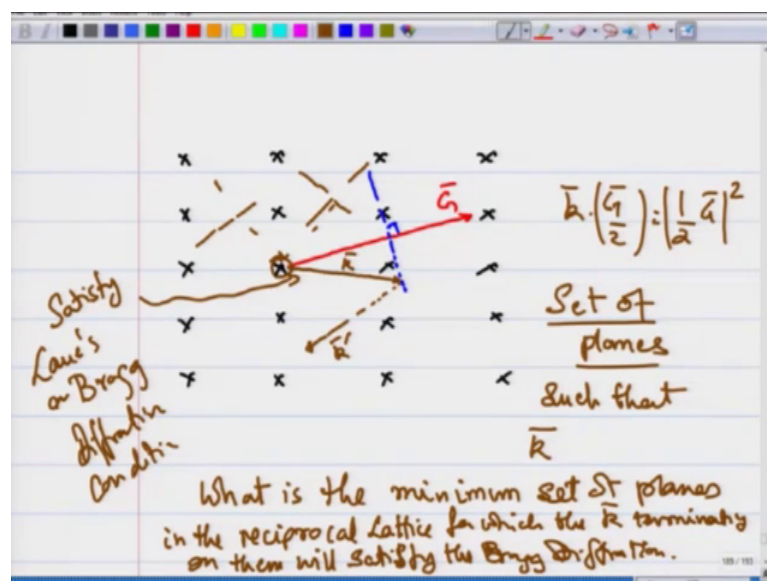 Ḡ
k̄
k̄'
k̄·(Ḡ/2) = |½ Ḡ|²
Satisfy
Laue's
or Bragg
Diffraction
Condition
Set of
planes
Such that
k̄
What is the minimum set of planes
in the reciprocal Lattice for which the k̄ terminating
on them will satisfy the Bragg Diffraction.
189 / 193